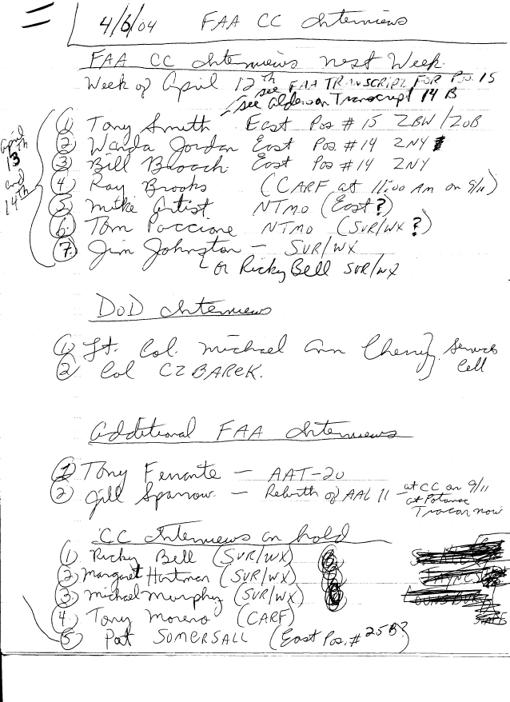 4/6/04 FAA CC Interviews
FAA CC Interviews next Week
Week of April 12th see FAA TRANSCRIPT FOR Pos. 15
see Alderson Transcript 14 B
April 13th and 14th
1 Tony Smith East Pos # 15 ZBW/ZOB
2 Wanda Jordan East Pos #14 ZNY
3 Bill Broach East Pos #14 ZNY
4 Ray Brooks (CARF at 11:00 AM on 9/11)
5 Mike Artist NTMO (East?)
6 Tom Paccione NTMO (SVR/WX?)
7. Jim Johnston - SVR/WX
or Ricky Bell SVR/WX
DoD Interviews
1 Lt. Col. Michael Ann Cherry } Services
2 Col CZBAREK. } Cell
Additional FAA Interviews
1 Tony Ferrante - AAT-20
2 Jill Sparrow - Rebirth of AAL 11 - at CC on 9/11
at Potomac
Tracon now
CC Interviews on hold
1 Ricky Bell (SVR/WX)
2 Margaret Hartman (SVR/WX)
3 Michael Murphy (SVR/WX)
4 Tony Moreno (CARF)
5 Pat SOMERSALL (East Pos. # 25B?)